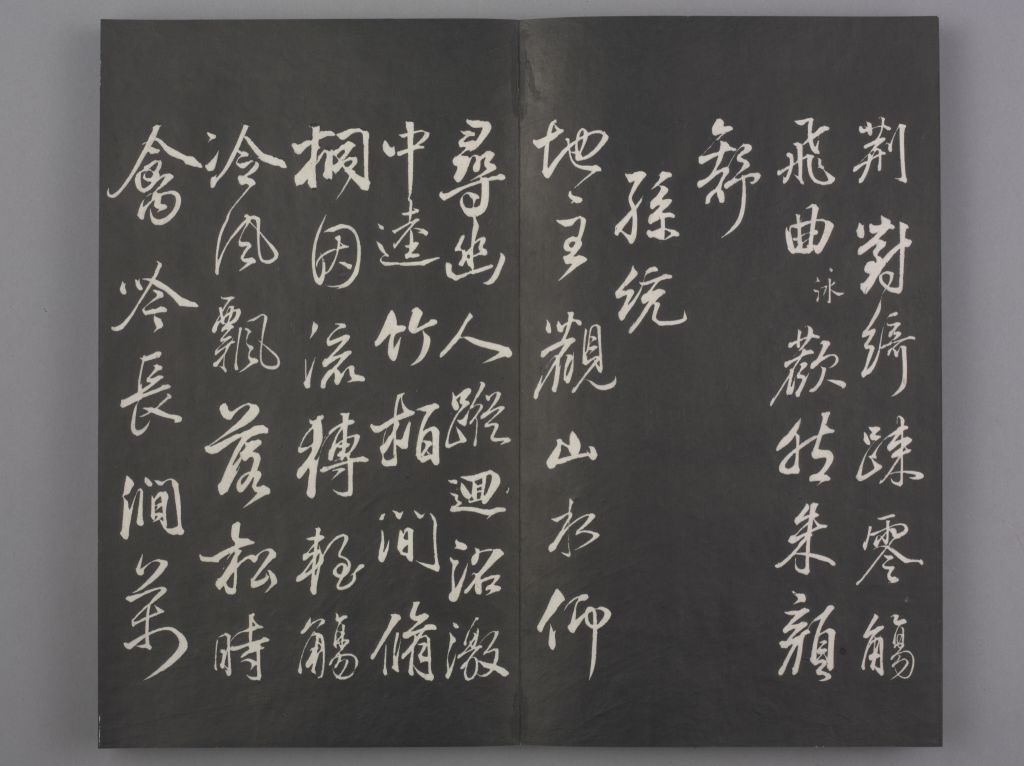 荊對綺踈零觴
飛曲泳歡然朱顏
舒
孫統
地主觀山水仰
尋幽人蹤迴沼激
中逵竹栢澗脩
桐因流轉輕觴
冷風飄落松時
禽吟長澗萬